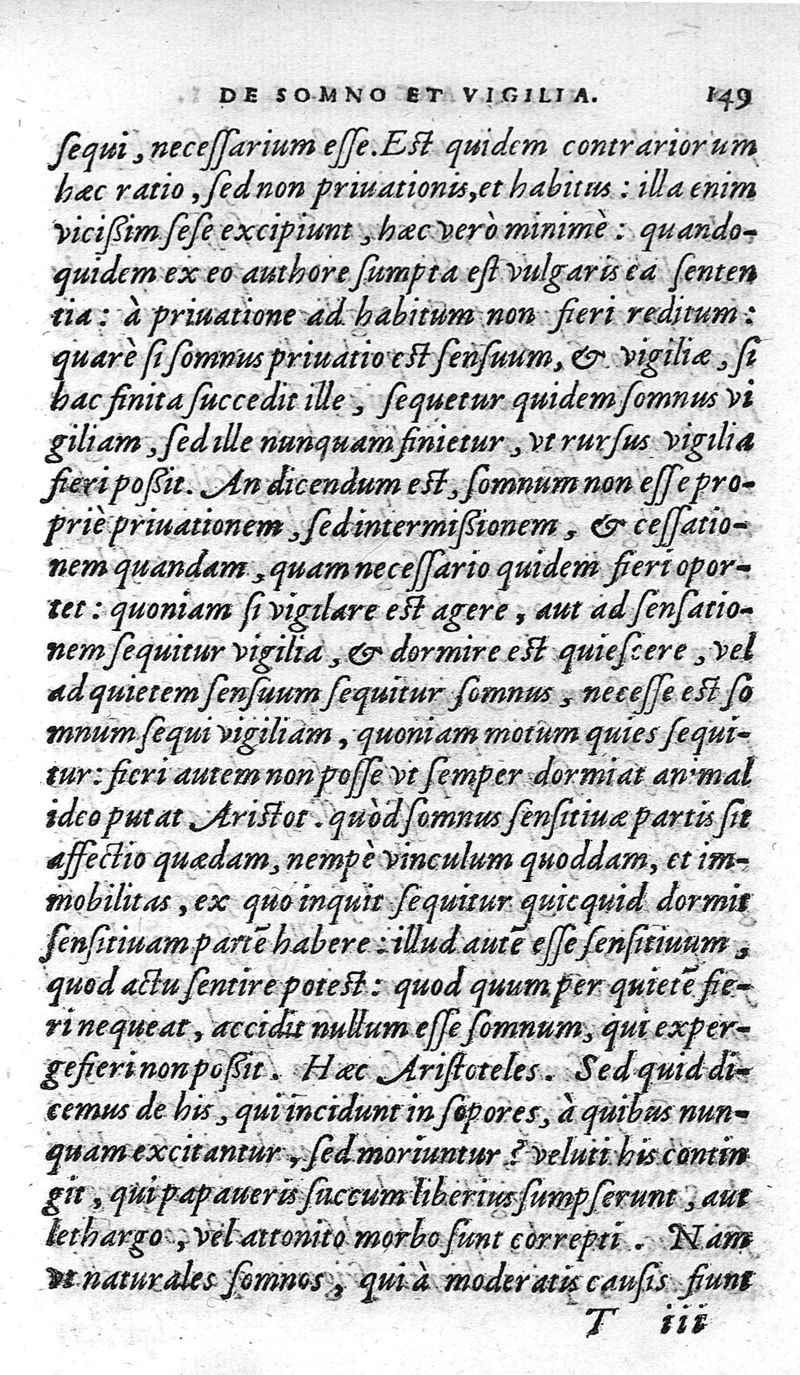 DE SOMNO ET VIGILIA. 149
sequi, necessarium esse. Est quidem contrariorum
hæc ratio, sed non priuationis, et habitus: illa enim
vicißim sese excipiunt, hæc verò minimè: quando-
quidem ex eo authore sumpta est vulgaris ea senten
tia: à priuatione ad habitum non fieri reditum:
quarè si somnus priuatio est sensuum, & vigiliæ, si
hac finita succedit ille, sequetur quidem somnus vi
giliam, sed ille nunquam finietur, vt rursus vigilia
fieri poßit. An dicendum est, somnum non esse pro-
priè priuationem, sed intermißionem, & cessatio-
nem quandam, quam necessario quidem fieri opor-
tet: quoniam si vigilare est agere, aut ad sensatio-
nem sequitur vigilia, & dormire est quiescere, vel
ad quietem sensuum sequitur somnus, necesse est so
mnum sequi vigiliam, quoniam motum quies sequi-
tur: fieri autem non posse vt semper dormiat animal
ideo putat Aristot. quòd somnus sensitiuæ partis sit
affectio quædam, nempè vinculum quoddam, et im-
mobilitas, ex quo inquit sequitur quicquid dormit
sensitiuam partē habere: illud autē esse sensitiuum,
quod actu sentire potest: quod quum per quietē fie-
ri nequeat, accidit nullum esse somnum, qui exper-
gefieri non poßit. Hæc Aristoteles. Sed quid di-
cemus de his, qui incidunt in sopores, à quibus nun-
quam excitantur, sed moriuntur? veluti his contin
git, qui papaueris succum liberius sumpserunt, aut
lethargo, vel attonito morbo sunt correpti. Nam
vt naturales somnos, qui à moderatis causis fiunt
T iii